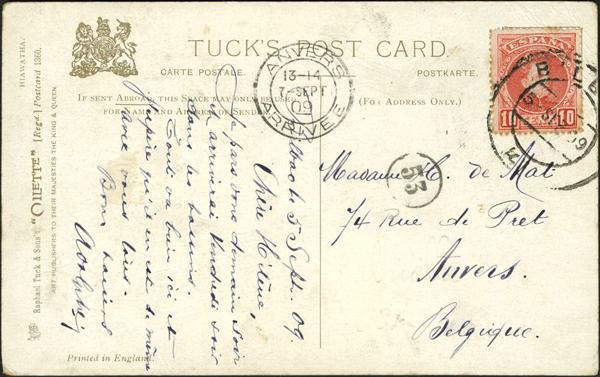 TUCK'S POST CARD.
CARTE POSTALE.
POSTKARTE.
IF SENT ABROAD, THIS SPACE MAY ONLY BE USED
FOR NAME AND ADDRESS OF SENDER.
(FOR ADDRESS ONLY.)
HIAWATHA.
Raphael Tuck & Sons' "OILETTE" [Regd.] Postcard 1360.
ART PUBLISHERS TO THEIR MAJESTIES THE KING & QUEEN.
Printed in England.
ANVERS
13-14
7 SEPT
09
ARRIVEE
53
ESPAÑA
10
10
5 Sept. 09.
Chère Hélène,
Je pars demain soir
et arriverai Vendredi soir
dans les
Tout va bien ici et
j'espère qu'il en est de même
avec vous tous.
Bons baisers
Madame H. de Mat
74 Rue de Pret
Anvers.
Belgique.